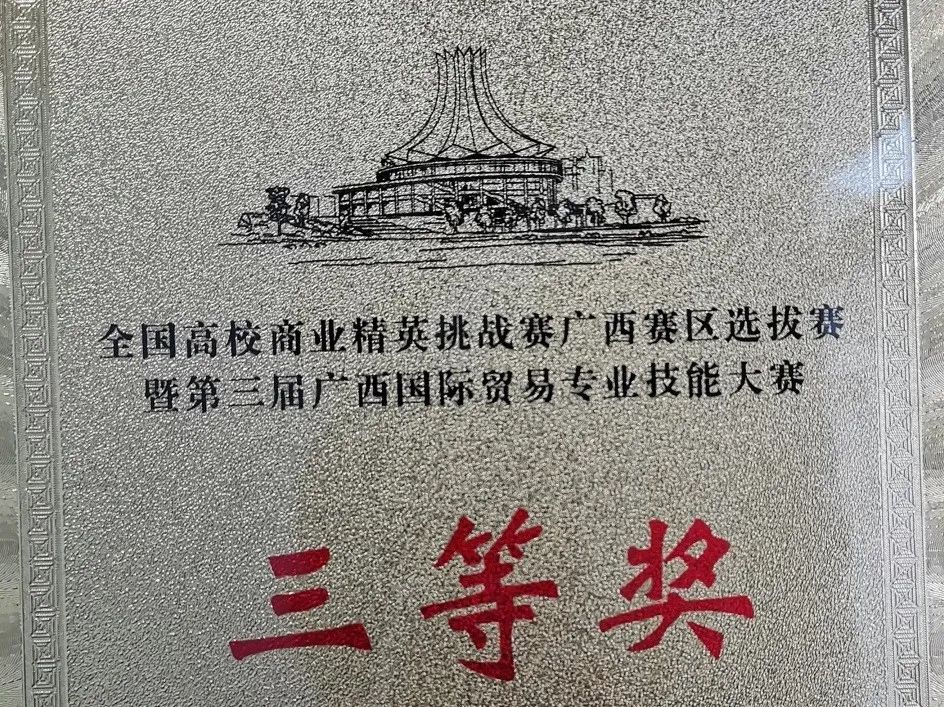 全国高校商业精英挑战赛广西赛区选拔赛
暨第三届广西国际贸易专业技能大赛
三等奖